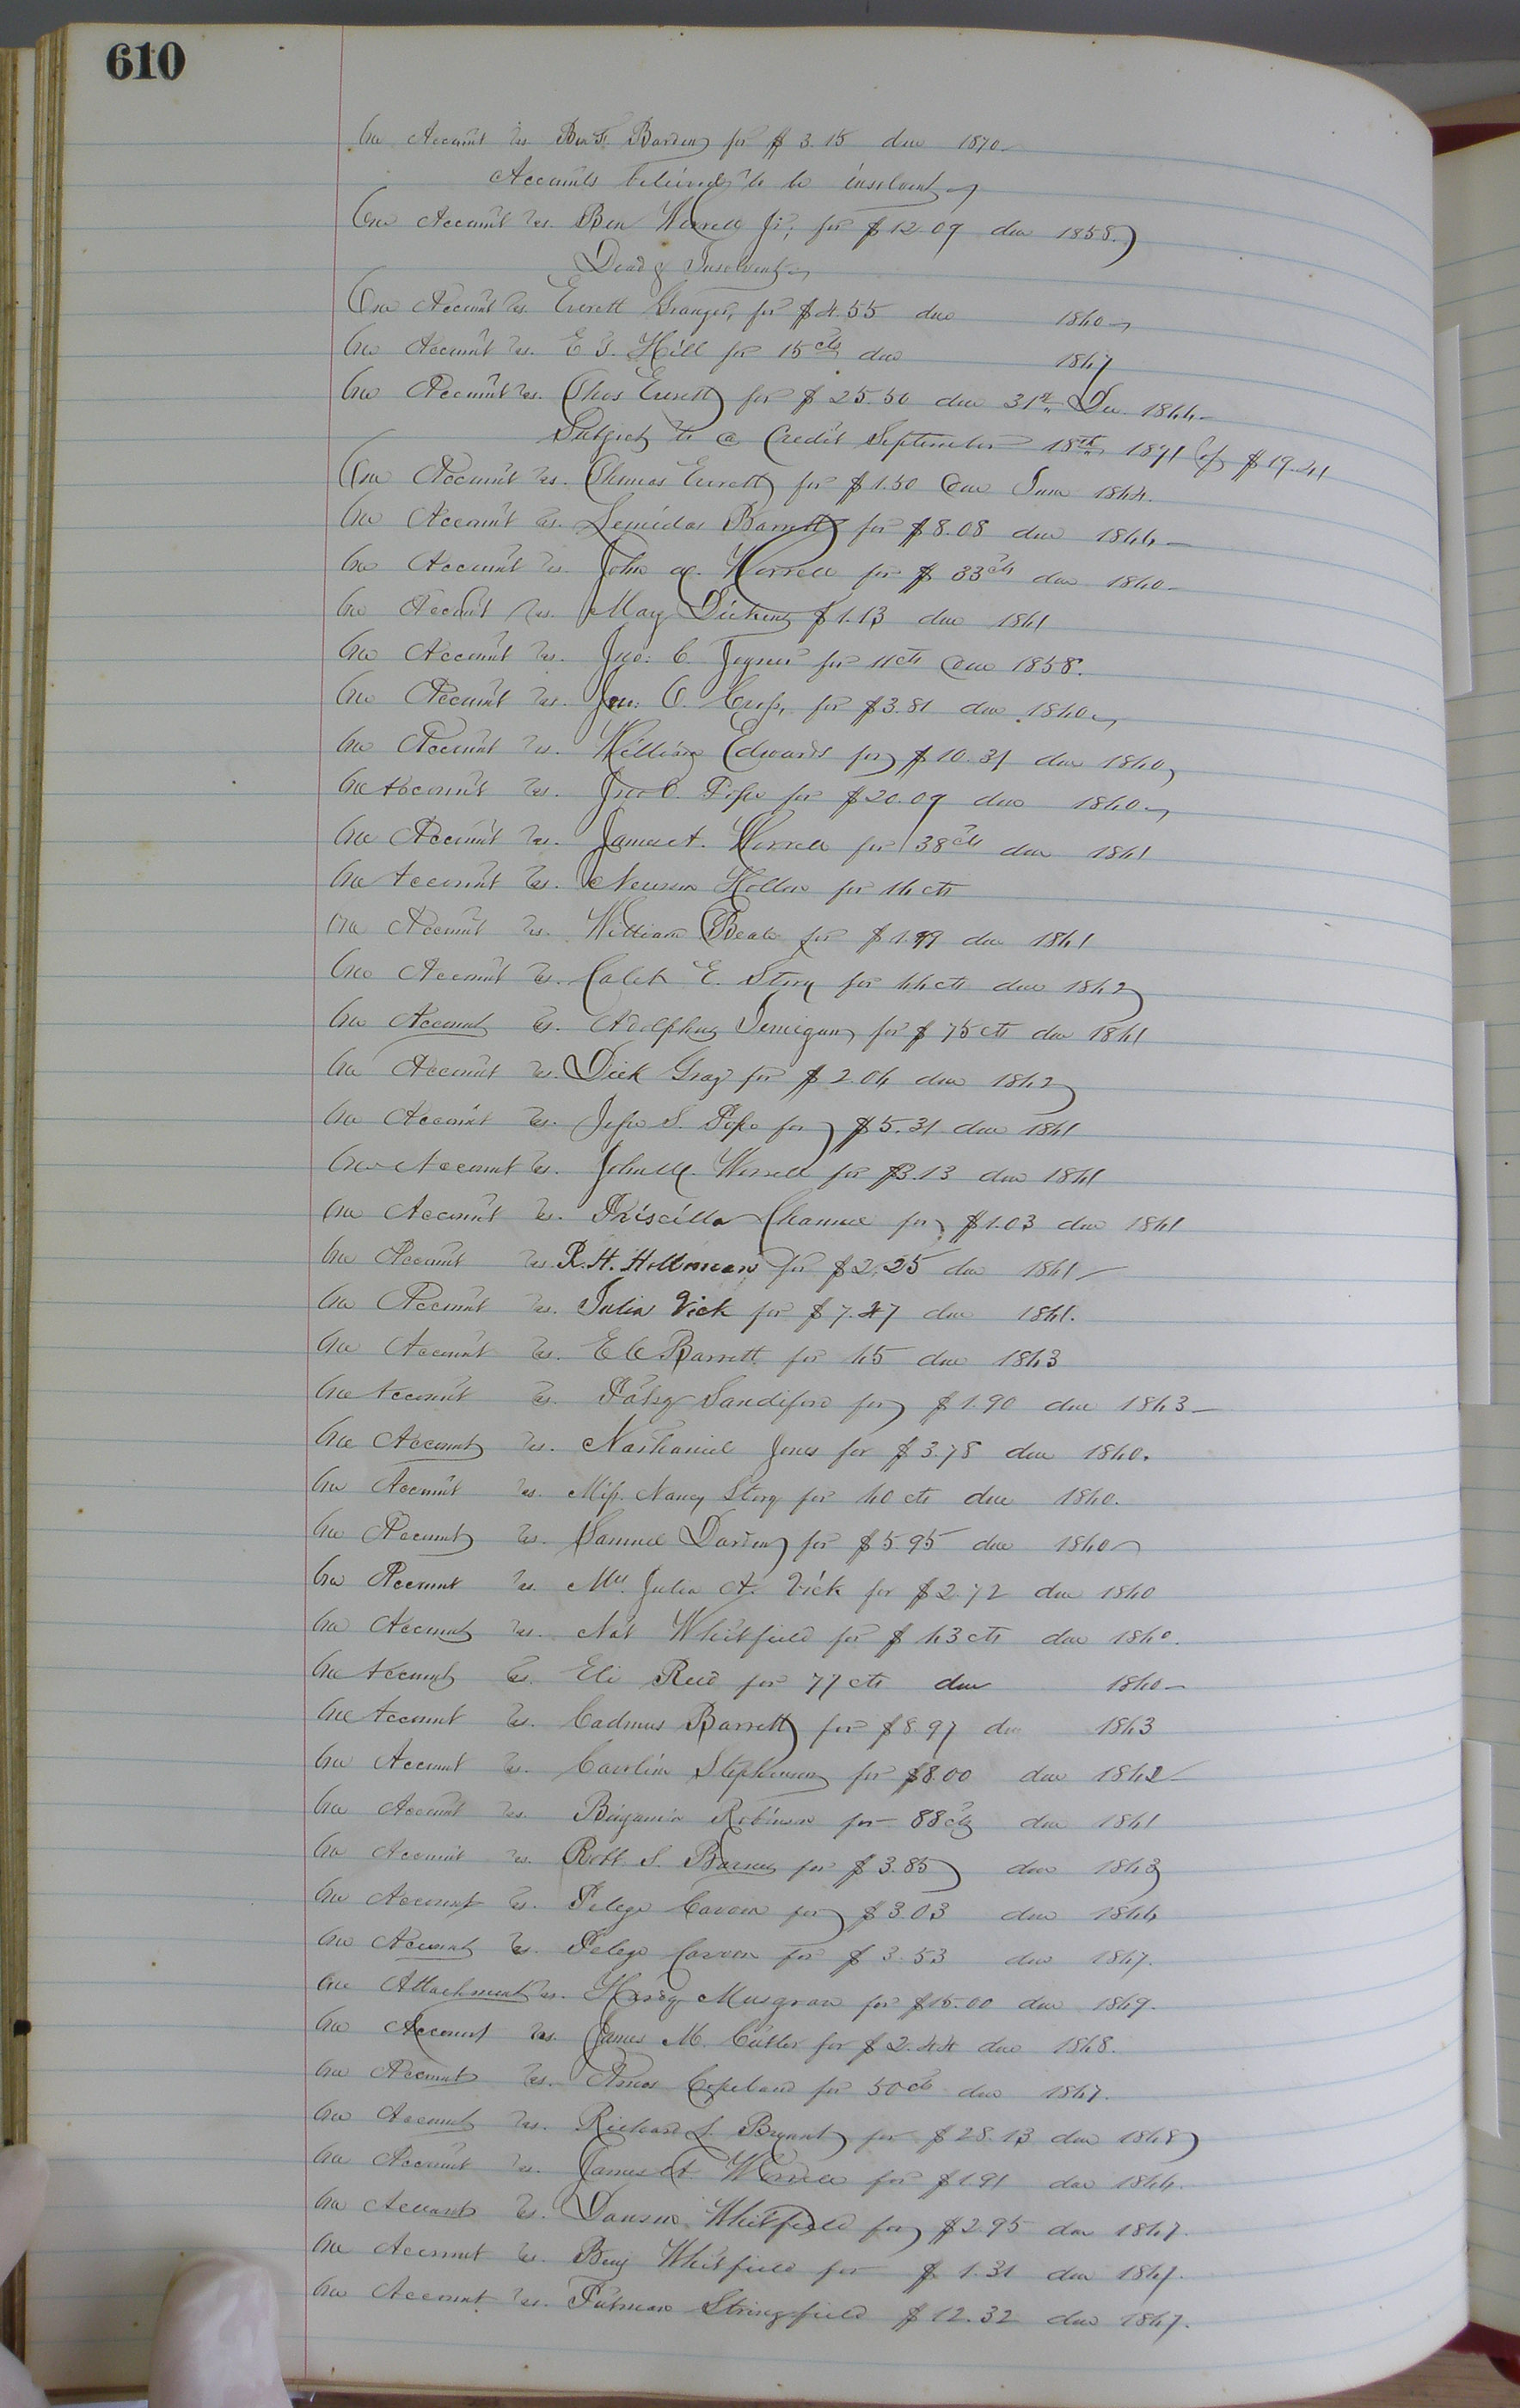 610
One Account vs Ben F. Barden for $ 3.15 due 1870
Accounts believed to be insolvent
One Account vs. Ben Worrell Jr, for $12.09 due 1858.
Dead & Insolvent
One Account vs. Everett Granger, for $4.55 due 1860
One Account vs. E T. Hill for 15 cts due 1867
One Account vs. Thos Everett for $ 25.50 due 31st Dec. 1866
Subject to a Credit September 18th 1871 of $19.41
One Account vs. Thomas Everett for $1.50 Due June 1864.
One Account vs. Leonidas Barrett for $8.08 due 1866
One Account vs. John W. Worrell for $ 33 cts due 1860
One Account vs. May Dickens $1.13 due 1861
One Account vs. Jno: C. Joyner for 11 cts Due 1858.
One Account vs. Jno: O. for $3.81 due 1860
One Account vs. William Edwards for $10.31 due 1860
One Account vs. Jno O. Pope for $20.09 due 1860
One Account vs. James A. Worrell for 38 cts due 1861
One Account vs. Newsom for 16 cts
One Account vs. William Beale for $1.99 due 1861
One Account vs. Caleb E. Story for 66 cts due 1862
One Account vs. Adolphus Jernigan for $ 75 cts due 1861
One Account vs. Dick Gray for $2.06 due 1862
One Account vs. Jesse S. Pope for $5.31 due 1861
One Account vs. John W. Worrell for $3.13 due 1861
One Account vs. Priscilla Channel for $1.03 due 1861
One Account vs. R. H. Holloman for $2.25 due 1861
One Account vs. Julia Vick for $7.47 due 1861.
One Account vs. E C Barrett for 65 due 1863
One Account vs. Patsy Sandiford for $1.90 due 1863
One Account vs. Nathaniel Jones for $3.78 due 1860.
One Account vs. Miss. Nancy Story for 60 cts due 1860.
One Account vs. Samuel Darden for $5.95 due 1860
One Account vs. Mrs. Julia A. Vick for $2.72 due 1860
One Account vs. Nat Whitfield for $ 63 cts due 1860.
One Account vs. Eli Reed for 77 cts due 1860
One Account vs. Cadmus Barrett for $8.97 due 1863
One Account vs. Caroline Stephenson for $8.00 due 1862
One Account vs. Benjamin Robinson for 88 cts due 1861
One Account vs. Robt. S. Barnes for $3.85 due 1863
One Account vs. Pelege Carson for $3.03 due 1866
One Account vs. Pelege Carson for $ 3.53 due 1867.
One Attachment vs. Hardy Musgrave for $15.00 due 1869.
One Account vs. James M. Cutler for $2.44 due 1868.
One Account vs. Amos Copeland for 50 cts due 1867.
One Account vs. Richard L. Bryant for $28.13 due 1868
One Account vs. James A. Worrell for $1.91 due 1866.
One Account vs. Dawson Whitfield for $2.95 due 1867.
One Account vs. Benj Whitfield for $ 1.31 due 1867.
One Account vs. Putman Stringfield $12.32 due 1867.